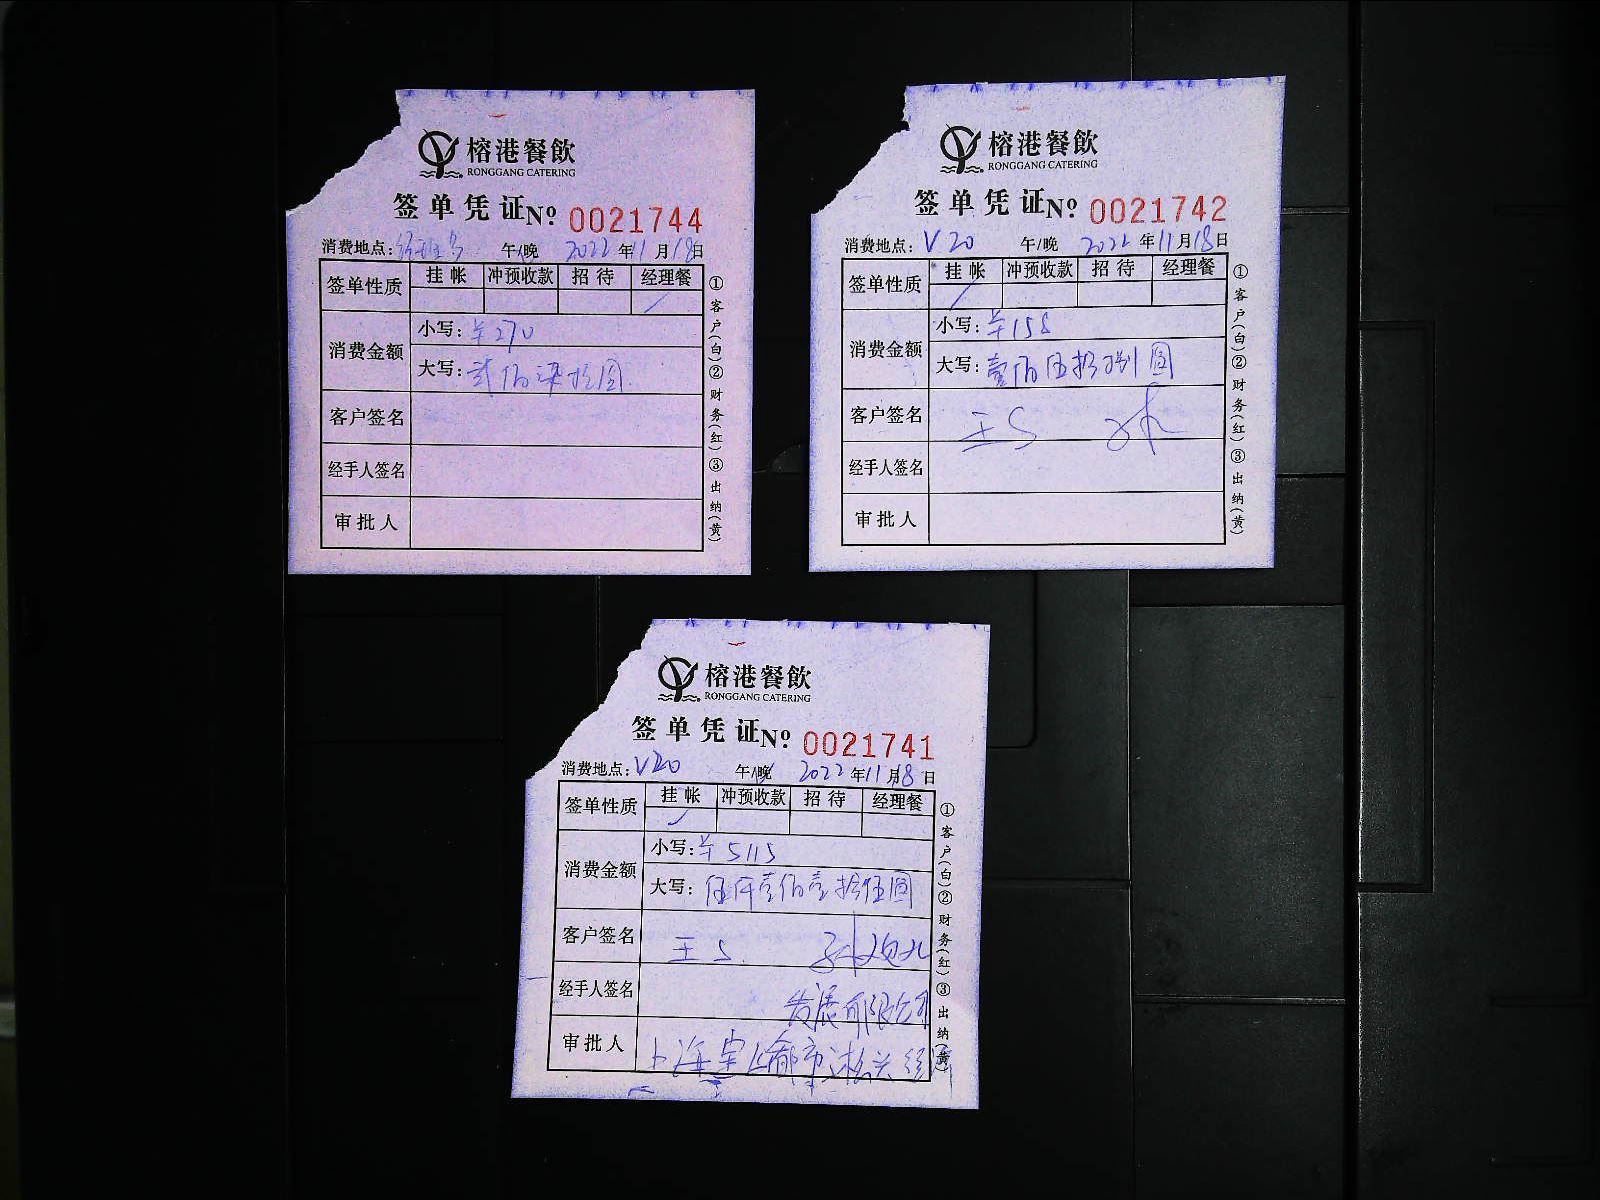 榕港餐飲
RONGGANG CATERING
签单凭证 Nº 0021744
消费地点: 午/晚 2022年11月18日
签单性质 挂帐 冲预收款 招待 经理餐
消费金额
小写: ¥270
大写: 贰佰柒拾圆
客户签名
经手人签名
审批人
①客户(白)②财务(红)③出纳(黄)
榕港餐飲
RONGGANG CATERING
签单凭证 Nº 0021742
消费地点: V20 午/晚 2022年11月18日
签单性质 挂帐 冲预收款 招待 经理餐
消费金额
小写: ¥158
大写: 壹佰伍拾捌圆
客户签名 王S
经手人签名
审批人
①客户(白)②财务(红)③出纳(黄)
榕港餐飲
RONGGANG CATERING
签单凭证 Nº 0021741
消费地点: V20 午/晚 2022年11月18日
签单性质 挂帐 冲预收款 招待 经理餐
消费金额
小写: ¥5115
大写: 伍仟壹佰壹拾伍圆
客户签名 王S.
经手人签名 发展有限公司
审批人 上海
①客户(白)②财务(红)③出纳(黄)